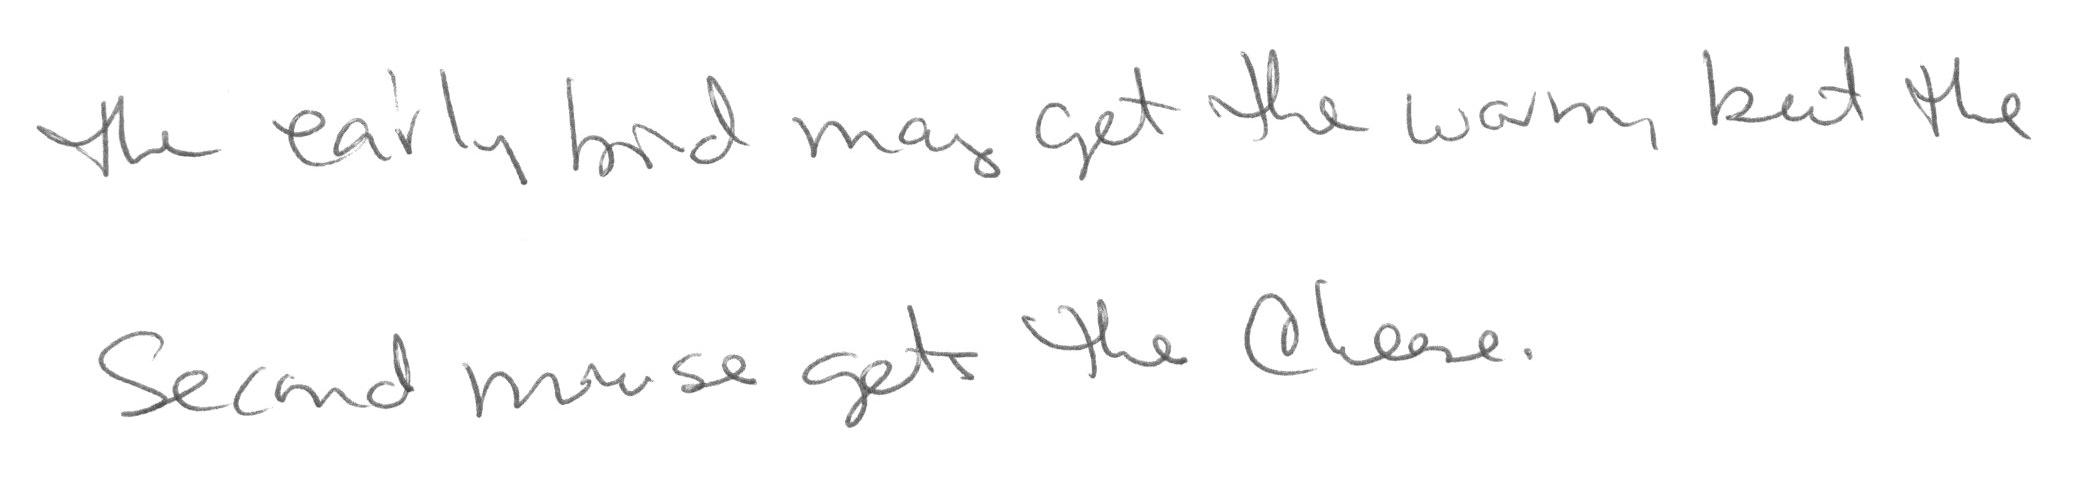 the early bird may get the warm, but the
Second mouse gets the Cheese.